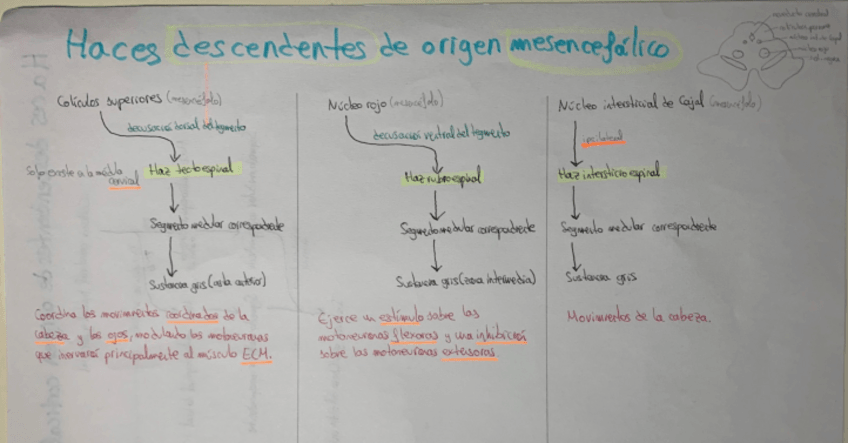 Haces descendentes de origen mesencefálico
Colículos superiores (mesencéfalo)
decusación dorsal del tegmento
Solo existe a la médula
cervical
Haz tectoespinal
Segmento medular correspondiente
Sustancia gris (asta anterior)
Coordina los movimientos coordinados de la
cabeza y los ojos, modulando las motoneuronas
que inervan principalmente al músculo ECM.
Núcleo rojo (mesencéfalo)
decusación ventral del tegmento
Haz rubroespinal
Segmento medular correspondiente
Sustancia gris (zona intermedia)
Ejerce un estímulo sobre las
motoneuronas flexoras y una inhibición
sobre las motoneuronas extensoras.
Núcleo intersticial de Cajal (mesencéfalo)
ipsilateral
Haz intersticioespinal
Segmento medular correspondiente
Sustancia gris
Movimientos de la cabeza.